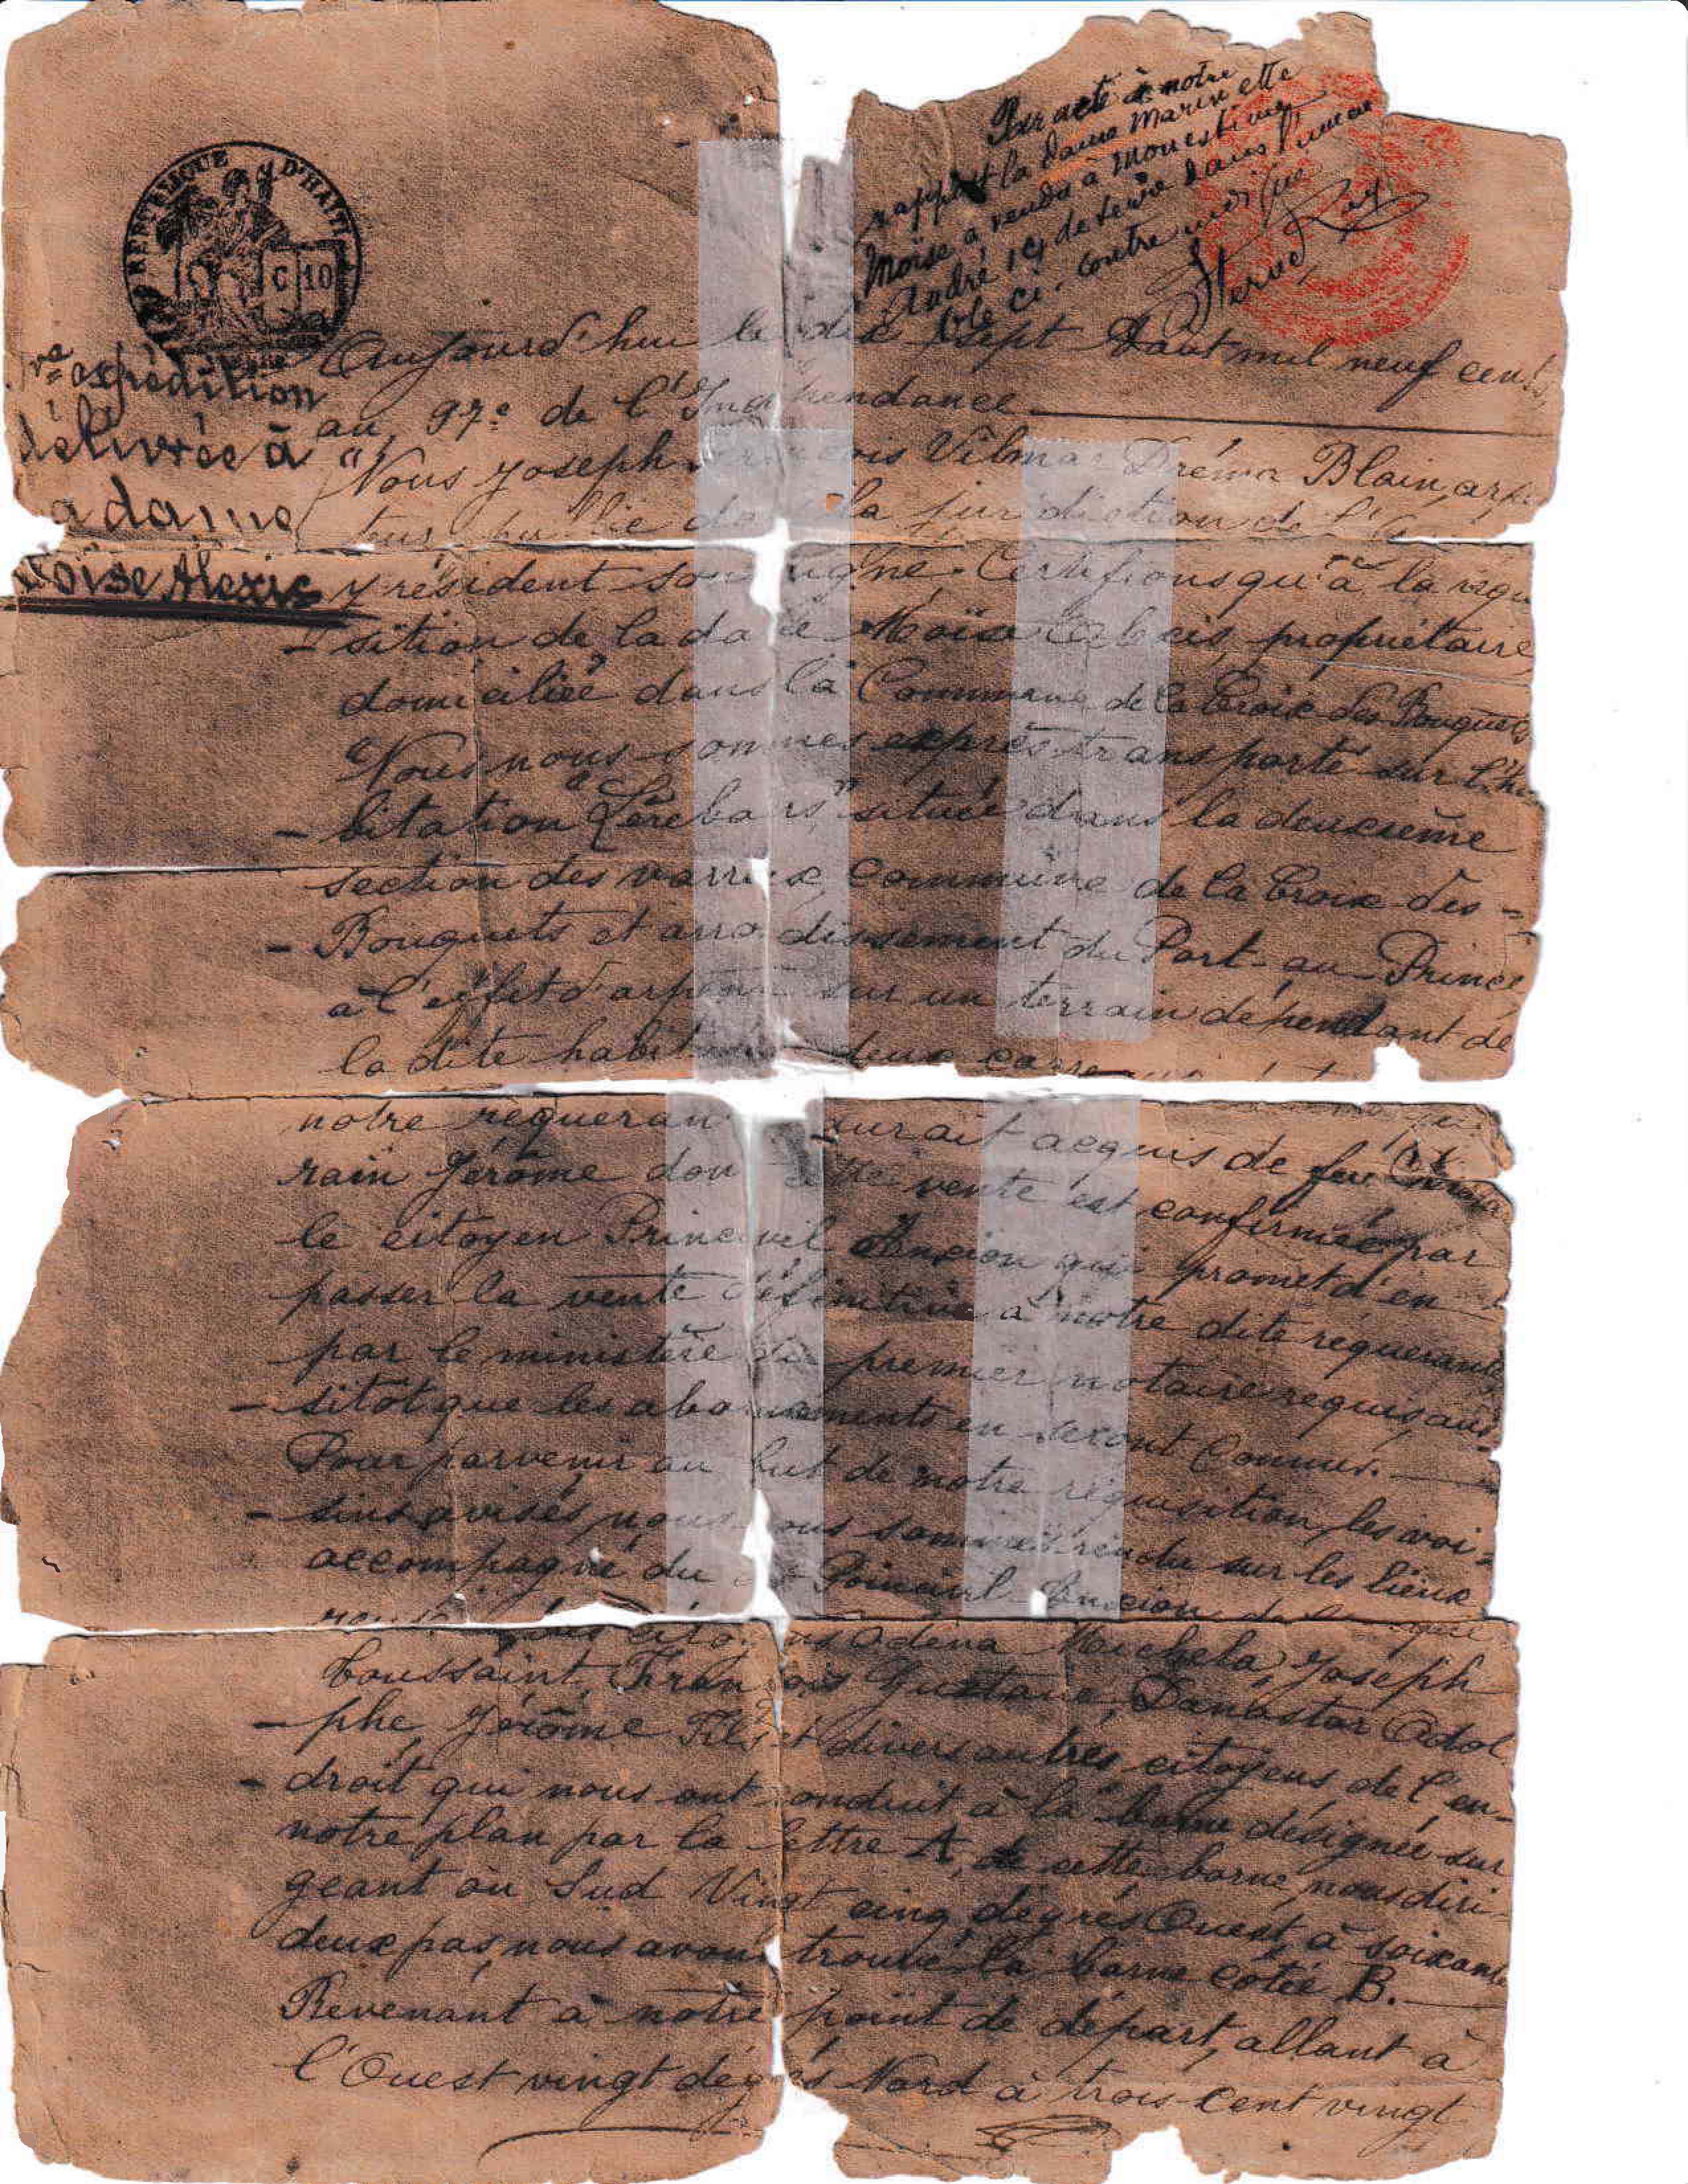 Par acte à notre
rapport la dame Marinette
Moïse a vendu à Monestime
André 19 de terre dans l'immeu
ble ci-contre indiqué
Hervé Roy
REPUBLIQUE D'HAITI
C 10
Aujourd'hui le dix sept Août mil neuf cent
au 97e de l'Indépendance
expédition
délivrée à
adame
oïse Alexis
Nous Joseph François Vilmar Dréma Blain, arpen
teur public dans la juridiction de
y résident soussigné. Certifions qu'à la réqui
- sition de la dame Moïse Alexis, propriétaire
domiciliée dans la Commune de la Croix des Bouquets
Nous nous sommes exprès transporté sur l'ha
- bitation "Lerebours" située dans la deuxième
section des varreux, Commune de la Croix-des =
- Bouquets et arrondissement du Port-au-Prince
à l'effet d'arpenter sur un terrain dépendant de
la dite habitation deux
notre requérante aurait acquis de feu
rain Jérôme dont cette vente est confirmée par
le citoyen Princivil Ancion qui promet d'en
passer la vente définitive à notre dite requérante
par le ministère du premier notaire requis, aus
- sitôt que les abornements en seront connus.
Pour parvenir au but de notre réquisition, les voi =
- sins avisés, nous nous sommes rendu sur les lieux
accompagné du Princivil Ancion
citoyens Odena Michela, Joseph
Toussaint, François Gustave, Danastor Adol
- phe, Jérôme Fils et divers autres citoyens de l'en-
- droit qui nous ont conduit à la borne désignée sur
notre plan par la lettre A, de cette borne, nous diri-
geant au Sud Vingt cinq dégrés Ouest à soixante
deux pas, nous avons trouvé la borne cotée B.
Revenant à notre point de départ, allant à
l'Ouest vingt dégrés Nord à trois cent vingt